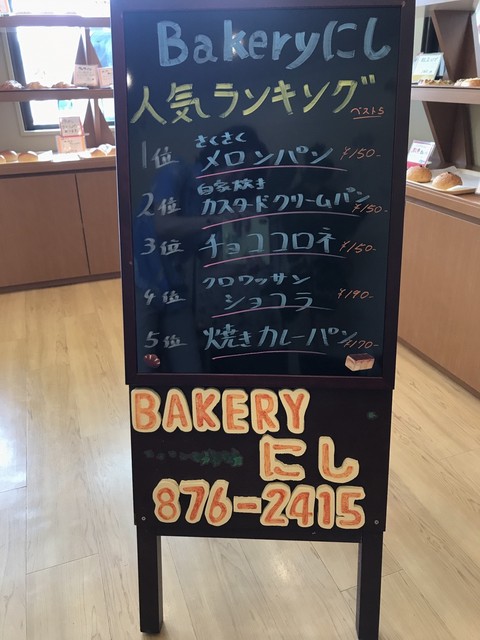 Bakeryにし
人気ランキング
ベスト5
1位 さくさく
メロンパン ¥150-
2位 自家炊き
カスタードクリームパン ¥150-
3位 チョココロネ ¥150-
4位 クロワッサン
ショコラ ¥190-
5位 焼きカレーパン ¥170-
BAKERY
にし
876-2415